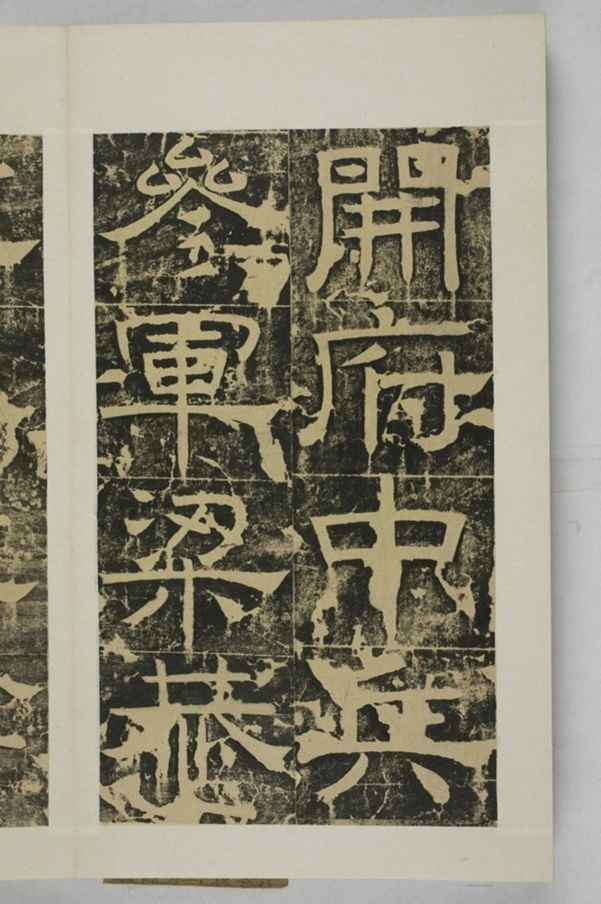 開府中兵
參軍梁恭